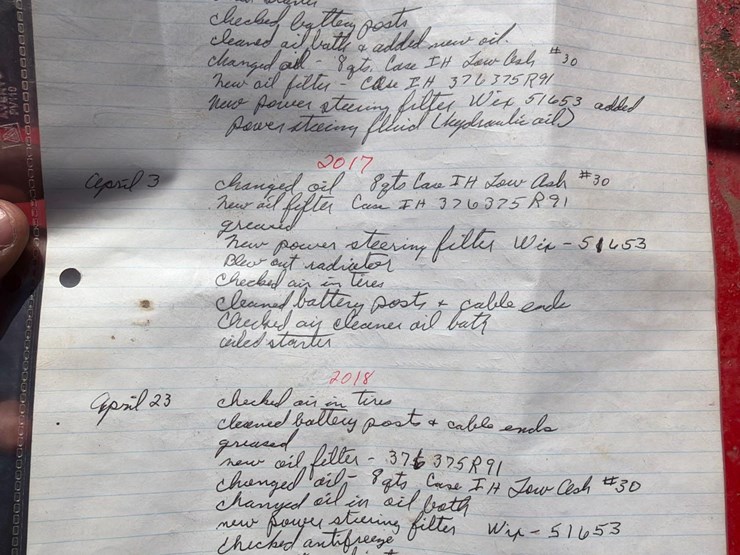 checked battery posts
cleaned oil bath & added new oil.
changed oil - 8 qts. Case IH Low Ash #30
new oil filter - Case IH 376375R91
new power steering filter Wix 51653 added
power steering fluid (hydraulic oil)
2017
April 3 changed oil 8 qts Case IH Low Ash #30
new oil filter Case IH 376375R91
greased
new power steering filter Wix - 51653
Blew out radiator
checked air in tires
cleaned battery posts + cable ends
Checked air cleaner oil bath
oiled starter
2018
April 23 checked air in tires
cleaned battery posts + cable ends
greased
new oil filter - 376375R91
changed oil - 8 qts Case IH Low Ash #30
changed oil in oil bath
new power steering filter Wix - 51653
checked antifreeze